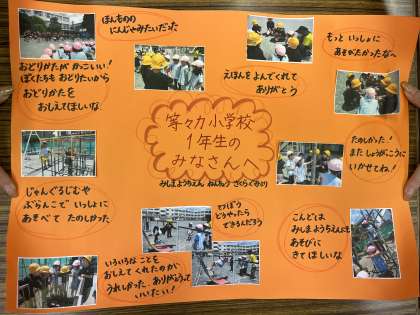 ほんものの
にんじゃみたいだった
おどりかたが かっこいい!
ぼくたちも おどりたいから
おどりかたを
おしえてほしいな
えほんを よんでくれて
ありがとう
もっと いっしょに
あそびたかったなぁ
等々力小学校
1年生の
みなさんへ
みしまようちえん ねんちょう さくらぐみより
たのしかった!
また しょうがっこうに
いかせてね!
じゃんぐるじむや
ぶらんこで いっしょに
あそべて たのしかった
てつぼう
どうやったら
できるんだろう
こんどは
みしまようちえんにも
あそびに
きてほしいな
いろいろな ことを
おしえて くれたのが
うれしかった。ありがとうって
いいたい!